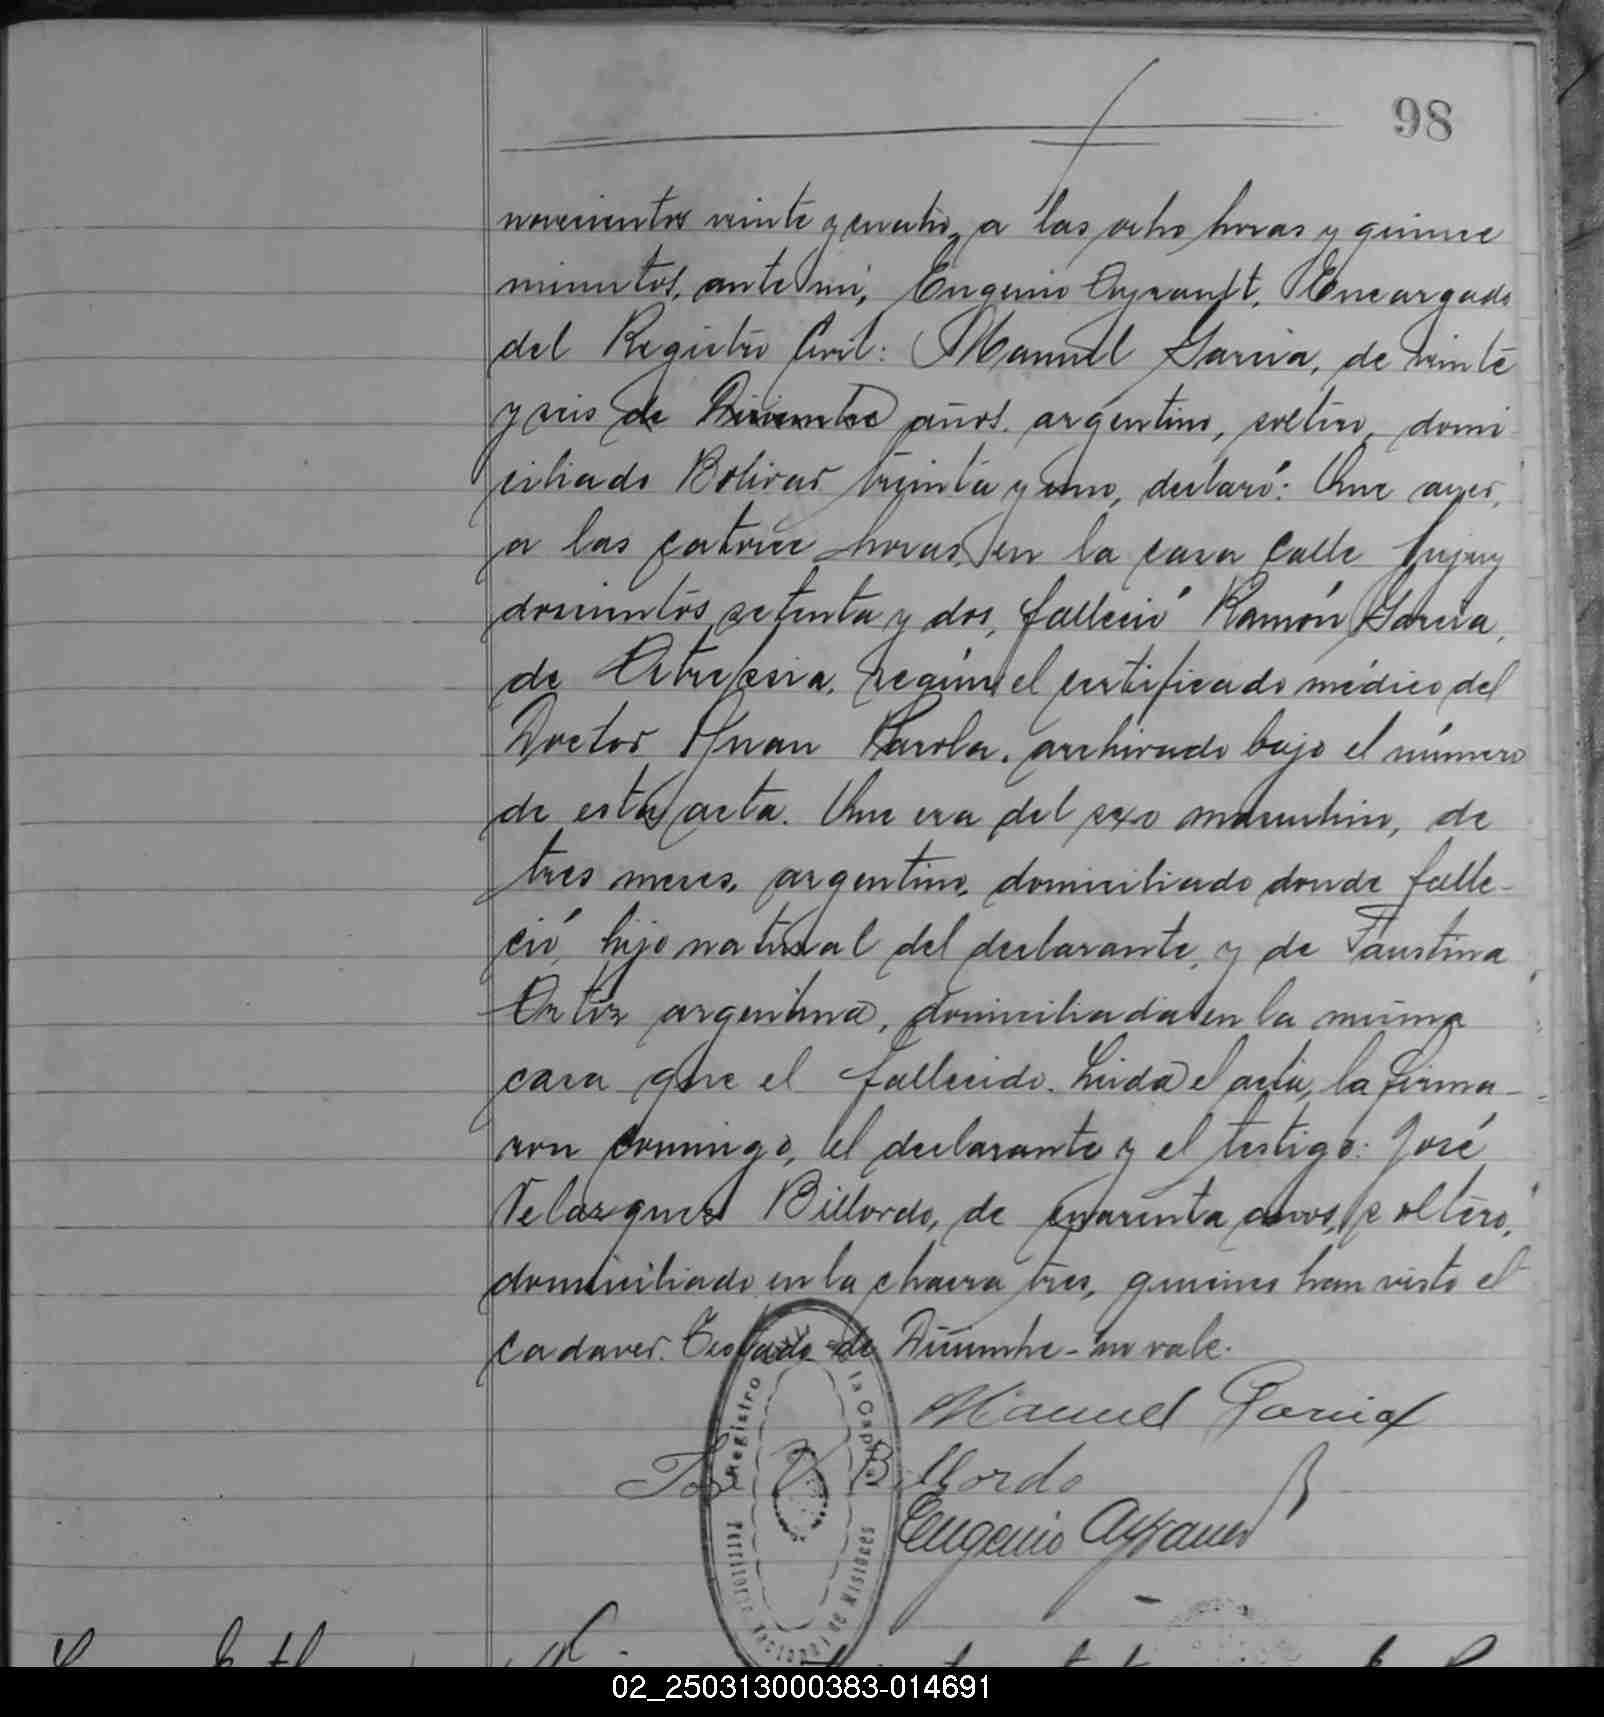 98
novecientos veinte y cuatro, a las ocho horas y quince
minutos, ante mí, Eugenio Ayrault, Encargado
del Registro Civil: Manuel Garcia, de veinte
y seis de Diciembre años, argentino, soltero, domi
ciliado Bolivar treinta y uno, declaró: Que ayer,
a las catorce horas, en la casa calle Jujuy
doscientos setenta y dos, falleció Ramón Garcia,
de Atrepsia, según el certificado médico del
Doctor Juan Parola, archivado bajo el número
de esta acta. Que era del sexo masculino, de
tres meses, argentino, domiciliado donde falle-
ció, hijo natural del declarante, y de Faustina
Ortiz argentina, domiciliada en la misma
casa que el fallecido. Leida el acta, la firma-
ron conmigo, el declarante y el testigo: José
Velazquez Billordo, de cuarenta años, soltero,
domiciliado en la chacra tres, quienes han visto el
cadaver. Testado - de Diciembre - no vale.
Manuel Garcia
José V Billordo
Eugenio Ayrault
Registro la Cap
Territorio Nacional de Misiones
02_250313000383-014691